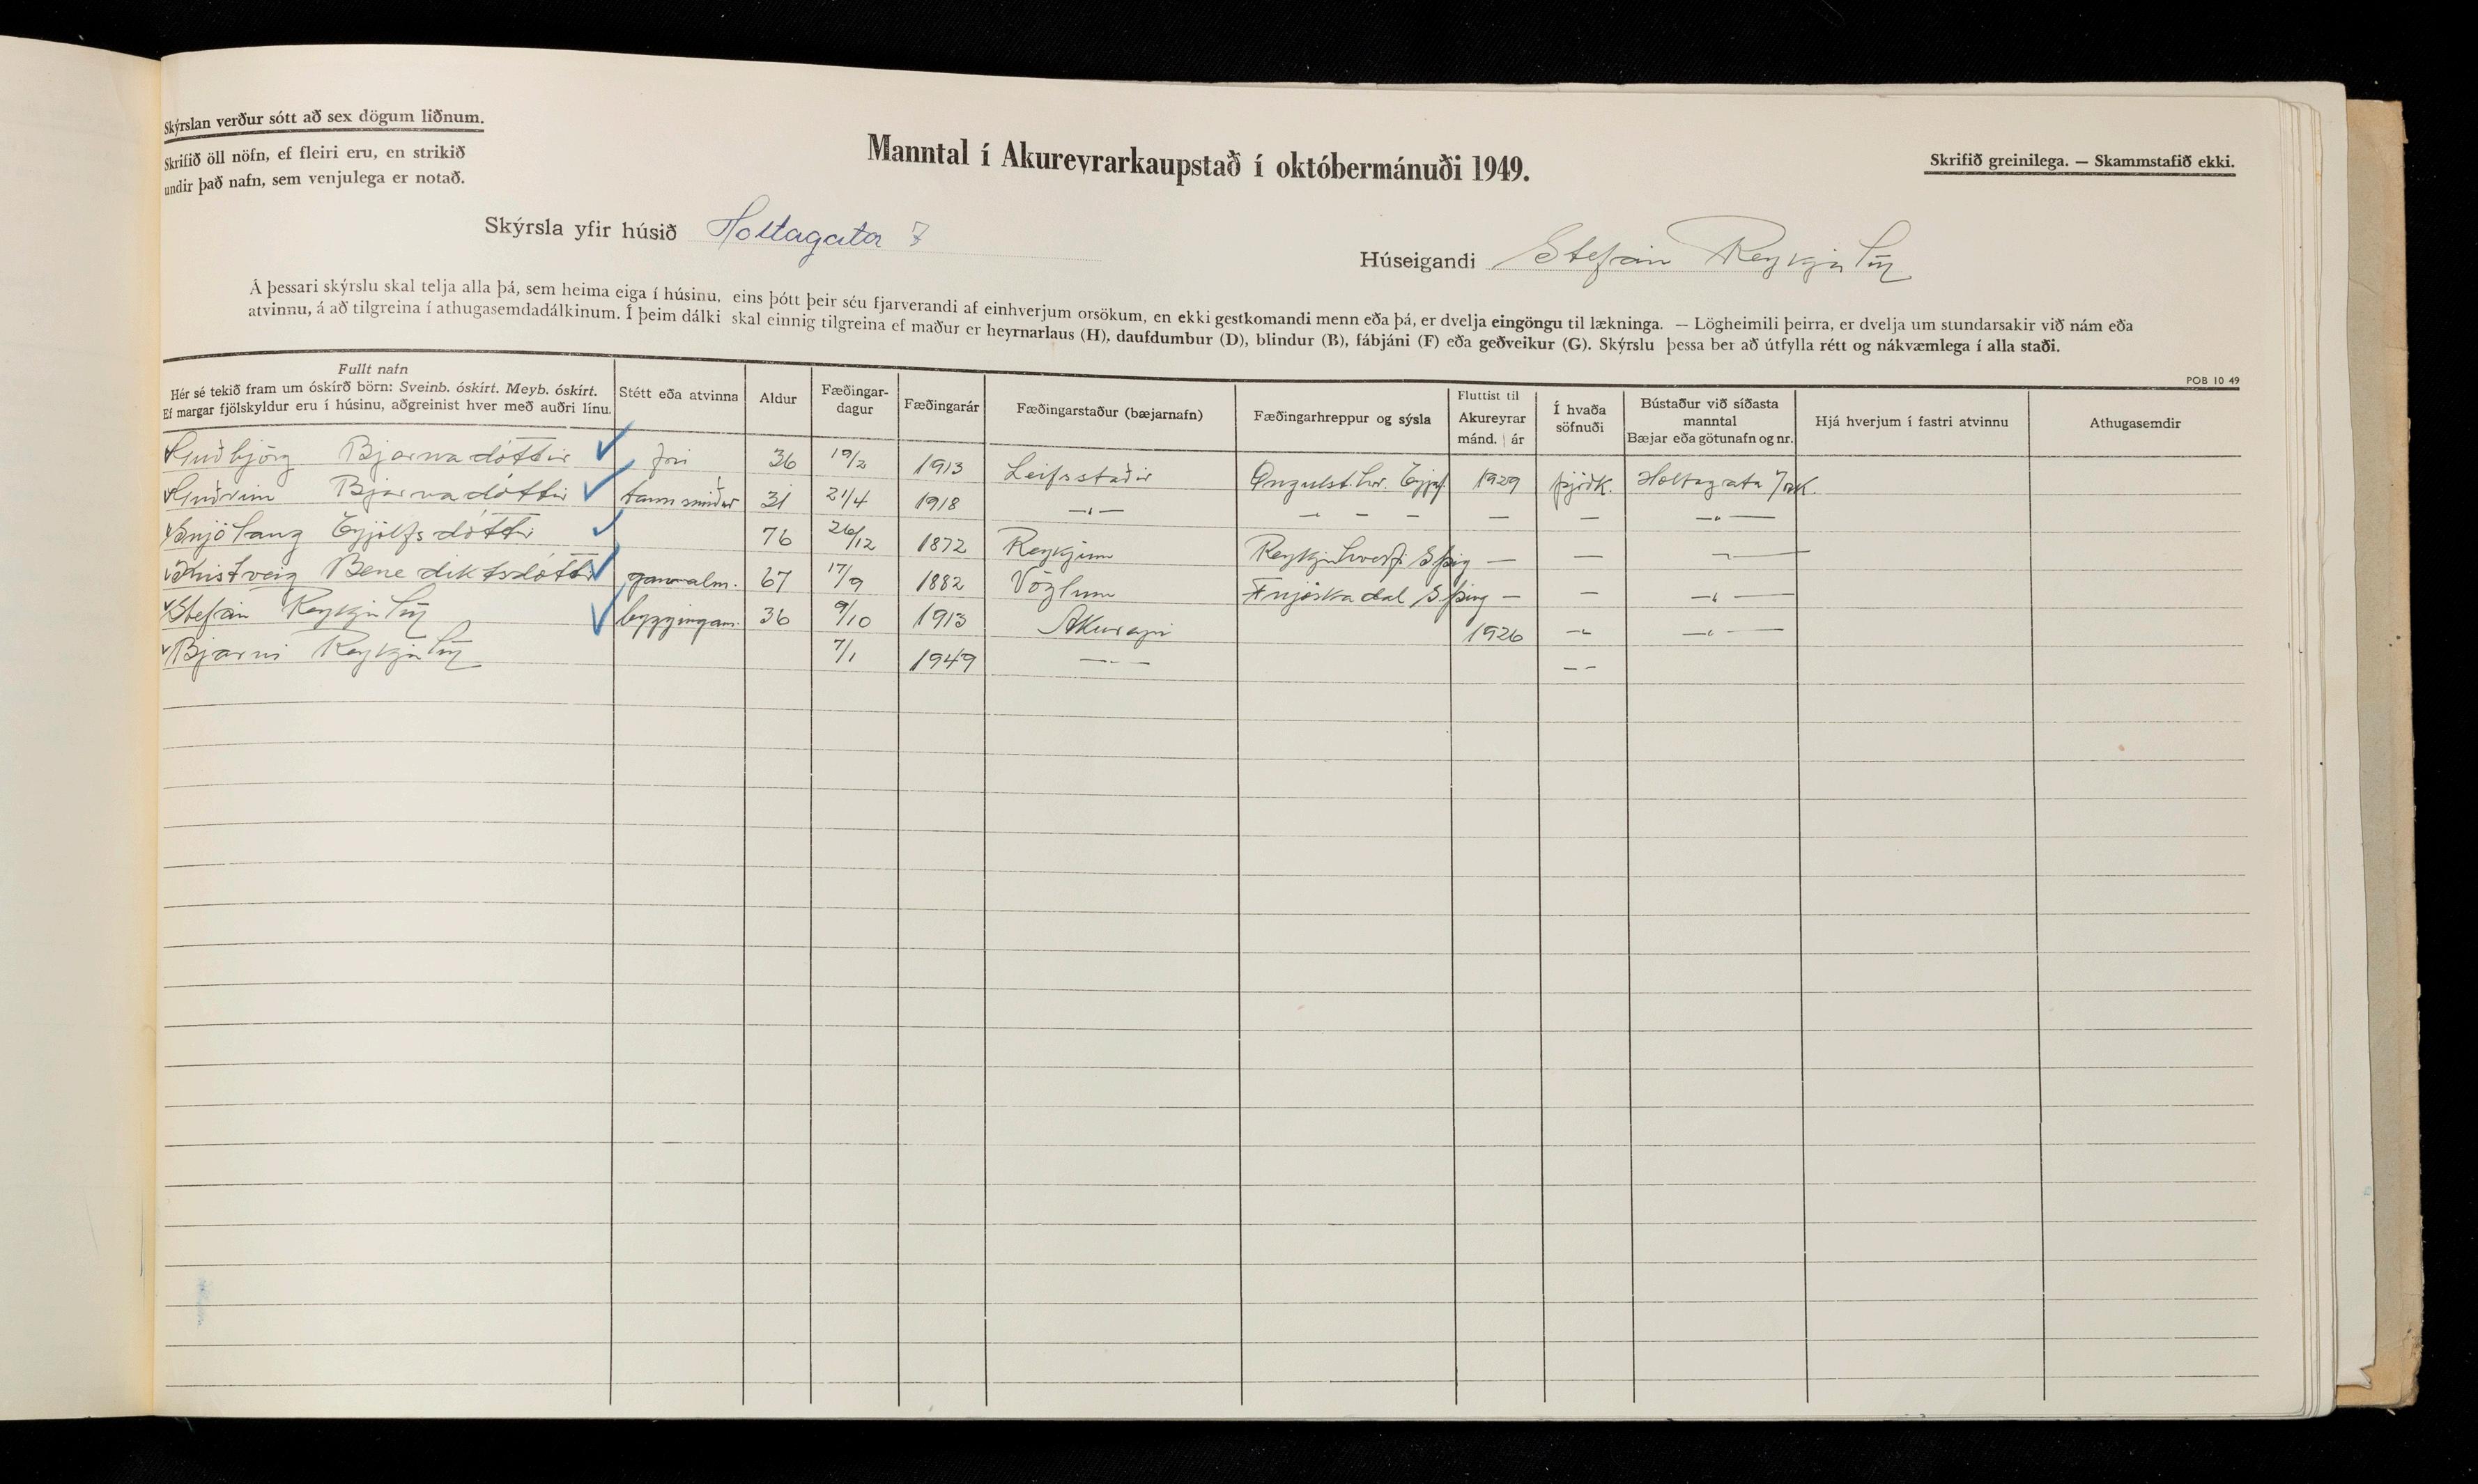 Skýrslan verður sótt að sex dögum liðnum.
Skrifið öll nöfn, ef fleiri eru, en strikið
undir það nafn, sem venjulega er notað.
Manntal í Akureyrarkaupstað í októbermánuði 1949.
Skrifið greinilega. — Skammstafið ekki.
Skýrsla yfir húsið Holtagata 7
Húseigandi Stefán Reykjalín
Á þessari skýrslu skal telja alla þá, sem heima eiga í húsinu, eins þótt þeir séu fjarverandi af einhverjum orsökum, en ekki gestkomandi menn eða þá, er dvelja eingöngu til lækninga. — Lögheimili þeirra, er dvelja um stundarsakir við nám eða
atvinnu, á að tilgreina í athugasemdadálkinum. Í þeim dálki skal einnig tilgreina ef maður er heyrnarlaus (H), daufdumbur (D), blindur (B), fábjáni (F) eða geðveikur (G). Skýrslu þessa ber að útfylla rétt og nákvæmlega í alla staði.
POB 10 49
Fullt nafn
Hér sé tekið fram um óskírð börn: Sveinb. óskírt. Meyb. óskírt.
Ef margar fjölskyldur eru í húsinu, aðgreinist hver með auðri línu.
Stétt eða atvinna
Aldur
Fæðingar-
dagur
Fæðingarár
Fæðingarstaður (bæjarnafn)
Fæðingarhreppur og sýsla
Fluttist til
Akureyrar
mánd. ár
Í hvaða
söfnuði
Bústaður við síðasta
manntal
Bæjar eða götunafn og nr.
Hjá hverjum í fastri atvinnu
Athugasemdir
Guðbjörg Bjarnadóttir frú 36 19/2 1913 Leifsstaðir Öngulst.hr. Eyjaf. 1929 þjóðk. Holtagata 7 Ak.
Guðrún Bjarnadóttir tannsmiður 31 21/4 1918 —"— — — — — — —"—
Snjólaug Eyjólfsdóttir 76 26/12 1872 Reykjum Reykjahverfi S þing — — —"—
Kristveig Benediktsdóttir gamalm. 67 17/9 1882 Vöglum Fnjóskadal S þing — — —"—
Stefán Reykjalín byggingam. 36 9/10 1913 Akureyri 1926 —"— —"—
Bjarni Reykjalín 7/1 1949 —"— — —